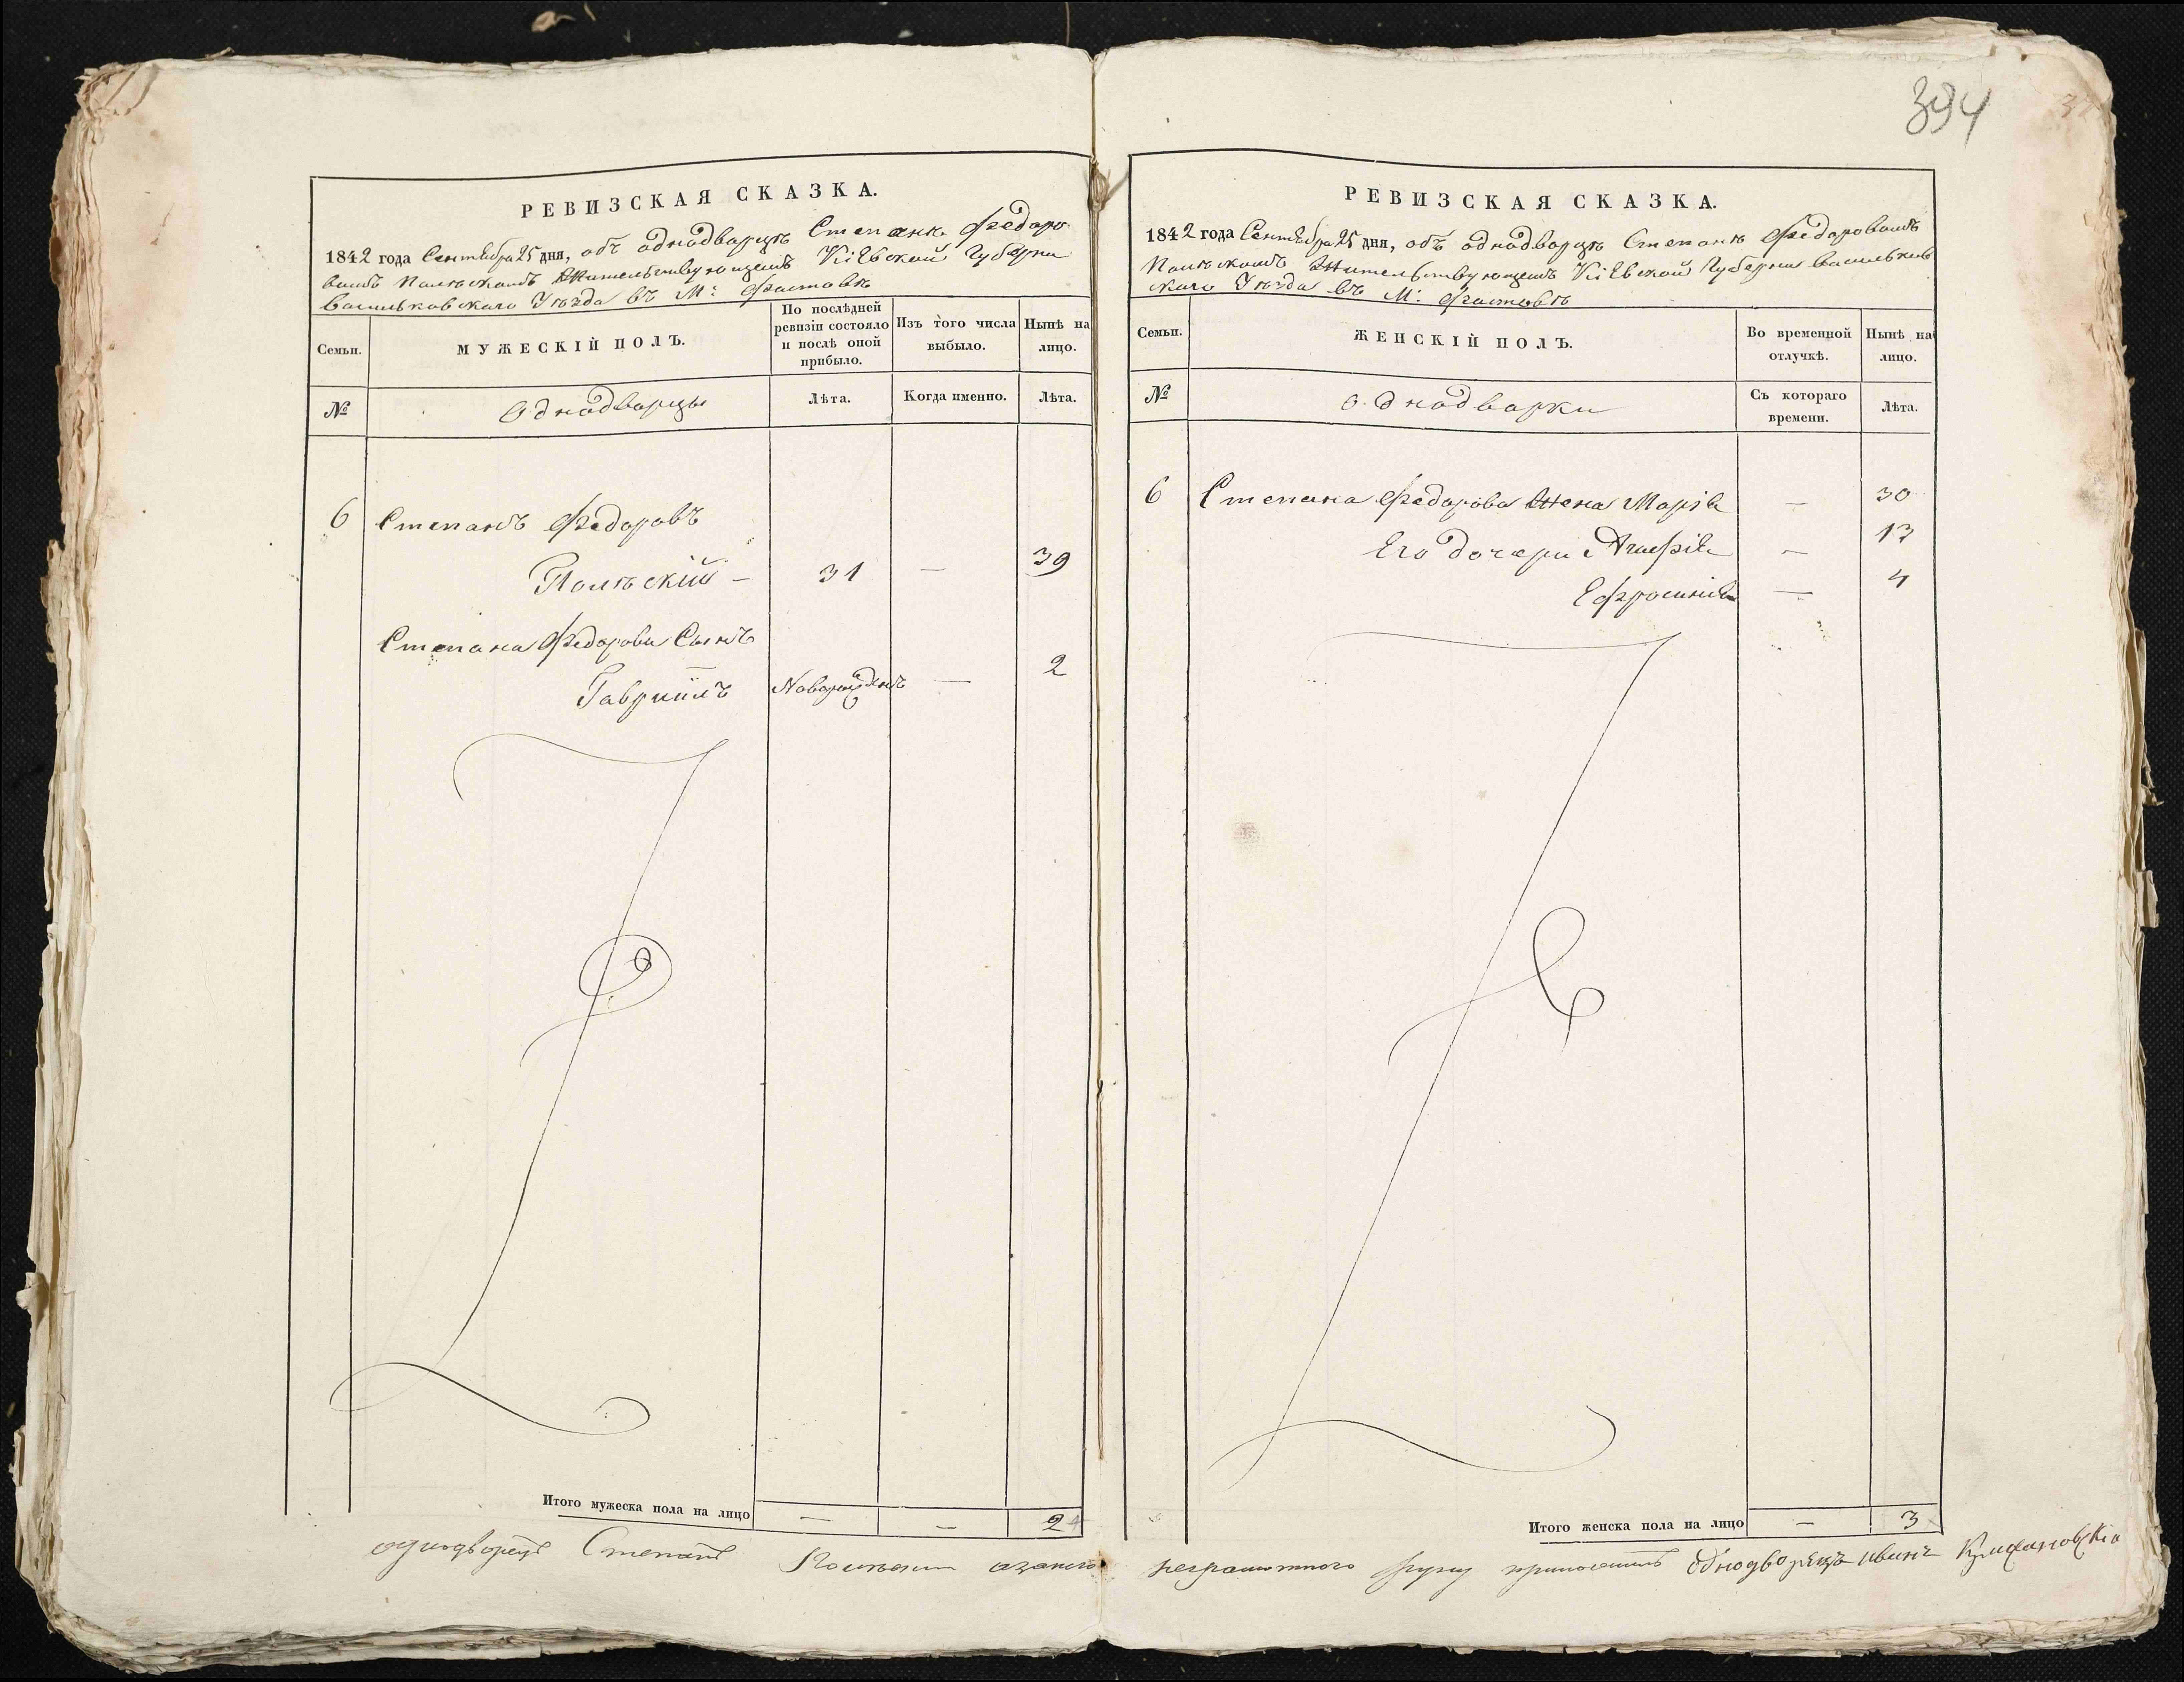 394
РЕВИЗСКАЯ СКАЗКА.
1842 года Сентября 25 дня, объ однодворцѣ Степанѣ Федоро
вомъ Польскомъ Жительствующемъ Кіевской Губерни
Васильковскаго Уѣзда въ М: Фастовѣ
Семьи.
МУЖЕСКІЙ ПОЛЪ.
По послѣдней ревизіи состояло и послѣ оной прибыло.
Изъ того числа выбыло.
Нынѣ на лицо.
№
Однодворцы
Лѣта.
Когда именно.
Лѣта.
6 Степанъ Федоровъ
Польскій – 31 — 39
Степана Федорова Сынъ
Гавріилъ Новорожденъ — 2
Итого мужеска пола на лицо — — 2
РЕВИЗСКАЯ СКАЗКА.
1842 года Сентября 25 дня, объ однодворцѣ Степанѣ Федоровомъ
Польскомъ Жительствующемъ Кіевской Губерни Васильков
скаго Уѣзда въ М: Фастовѣ
Семьи.
ЖЕНСКІЙ ПОЛЪ.
Во временной отлучкѣ.
Нынѣ на лицо.
№
Однодворки
Съ котораго времени.
Лѣта.
6 Степана Федорова Жена Марія — 30
Его дочери Агафія — 13
Ефросинія — 4
Итого женска пола на лицо — 3
однодворецъ Степанъ неграмотного руку приложилъ Однодворецъ Иванъ